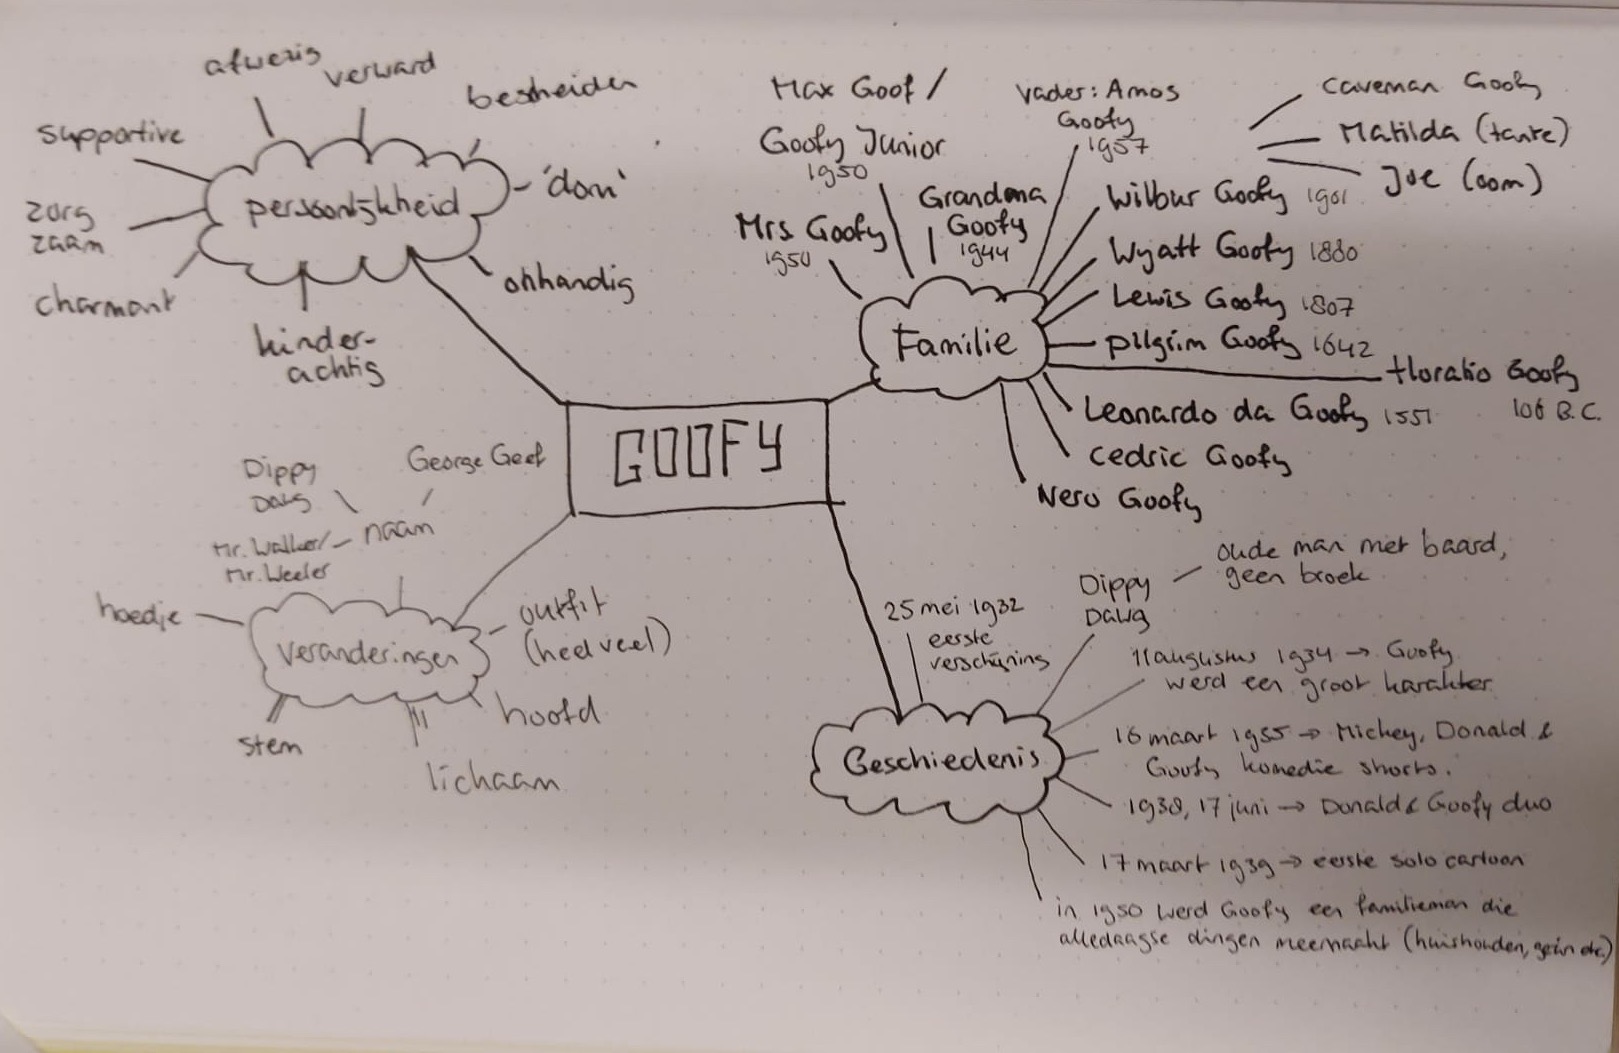 GOOFY
persoonlijkheid
afwezig
verward
bescheiden
'dom'
onhandig
kinder-
achtig
charmant
zorg
zaam
supportive
Familie
Mrs Goofy
1950
Max Goof /
Goofy Junior
1950
Grandma
Goofy
1944
vader: Amos
Goofy
1957
Caveman Goofy
Matilda (tante)
Joe (oom)
Wilbur Goofy 1901
Wyatt Goofy 1880
Lewis Goofy 1807
pilgrim Goofy 1642
Horatio Goofy
106 B.C.
Leonardo da Goofy 1551
Cedric Goofy
Nero Goofy
veranderingen
naam
Dippy
Dawg
George Geef
Mr. Walker/
Mr. Weeler
hoedje
outfit
(heel veel)
hoofd
lichaam
stem
Geschiedenis
25 mei 1932
eerste
verschijning
Dippy
Dawg
oude man met baard,
geen broek
11 augustus 1934 → Goofy
werd een groot karakter
16 maart 1955 → Mickey, Donald &
Goofy komedie shorts.
1938, 17 juni → Donald & Goofy duo
17 maart 1939 → eerste solo cartoon
in 1950 werd Goofy een familieman die
alledaagse dingen meemaakt (huishouden, gezin etc.)